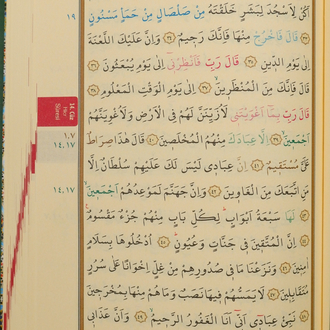 اَكُنْ لِاَسْجُدَ لِبَشَرٍ خَلَقْتَهُ مِنْ صَلْصَالٍ مِنْ حَمَأٍ مَسْنُونٍ
﴿٣٣﴾ قَالَ فَاخْرُجْ مِنْهَا فَاِنَّكَ رَجِيمٌ ﴿٣٤﴾ وَاِنَّ عَلَيْكَ اللَّعْنَةَ
اِلٰى يَوْمِ الدِّينِ ﴿٣٥﴾ قَالَ رَبِّ فَاَنْظِرْنِى اِلٰى يَوْمِ يُبْعَثُونَ ﴿٣٦﴾
قَالَ فَاِنَّكَ مِنَ الْمُنْظَرِينَ ﴿٣٧﴾ اِلٰى يَوْمِ الْوَقْتِ الْمَعْلُومِ ﴿٣٨﴾
قَالَ رَبِّ بِمَا اَغْوَيْتَنِى لَاُزَيِّنَنَّ لَهُمْ فِى الْاَرْضِ وَلَاُغْوِيَنَّهُمْ
اَجْمَعِينَ ﴿٣٩﴾ اِلَّا عِبَادَكَ مِنْهُمُ الْمُخْلَصِينَ ﴿٤٠﴾ قَالَ هٰذَا صِرَاطٌ
عَلَىَّ مُسْتَقِيمٌ ﴿٤١﴾ اِنَّ عِبَادِى لَيْسَ لَكَ عَلَيْهِمْ سُلْطَانٌ اِلَّا
مَنِ اتَّبَعَكَ مِنَ الْغَاوِينَ ﴿٤٢﴾ وَاِنَّ جَهَنَّمَ لَمَوْعِدُهُمْ اَجْمَعِينَ ﴿٤٣﴾
لَهَا سَبْعَةُ اَبْوَابٍ لِكُلِّ بَابٍ مِنْهُمْ جُزْءٌ مَقْسُومٌ ﴿٤٤﴾
اِنَّ الْمُتَّقِينَ فِى جَنَّاتٍ وَعُيُونٍ ﴿٤٥﴾ اُدْخُلُوهَا بِسَلَامٍ
اٰمِنِينَ ﴿٤٦﴾ وَنَزَعْنَا مَا فِى صُدُورِهِمْ مِنْ غِلٍّ اِخْوَانًا عَلٰى سُرُرٍ
مُتَقَابِلِينَ ﴿٤٧﴾ لَا يَمَسُّهُمْ فِيهَا نَصَبٌ وَمَا هُمْ مِنْهَا بِمُخْرَجِينَ
﴿٤٨﴾ نَبِّئْ عِبَادِى اَنِّى اَنَا الْغَفُورُ الرَّحِيمُ ﴿٤٩﴾ وَاَنَّ عَذَابِى
١٩
14. Cüz
Hicr
Suresi
١،٧
١٤،١٧
١٤،١٧